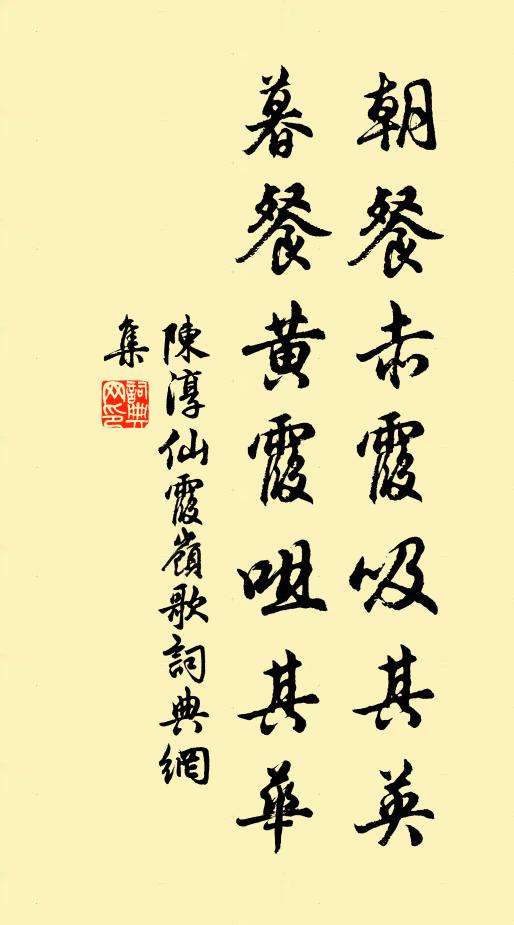 朝餐赤霞吸其英
暮餐黃霞咀其華
陳淳仙霞嶺歌詞典網
集
詞典
网印